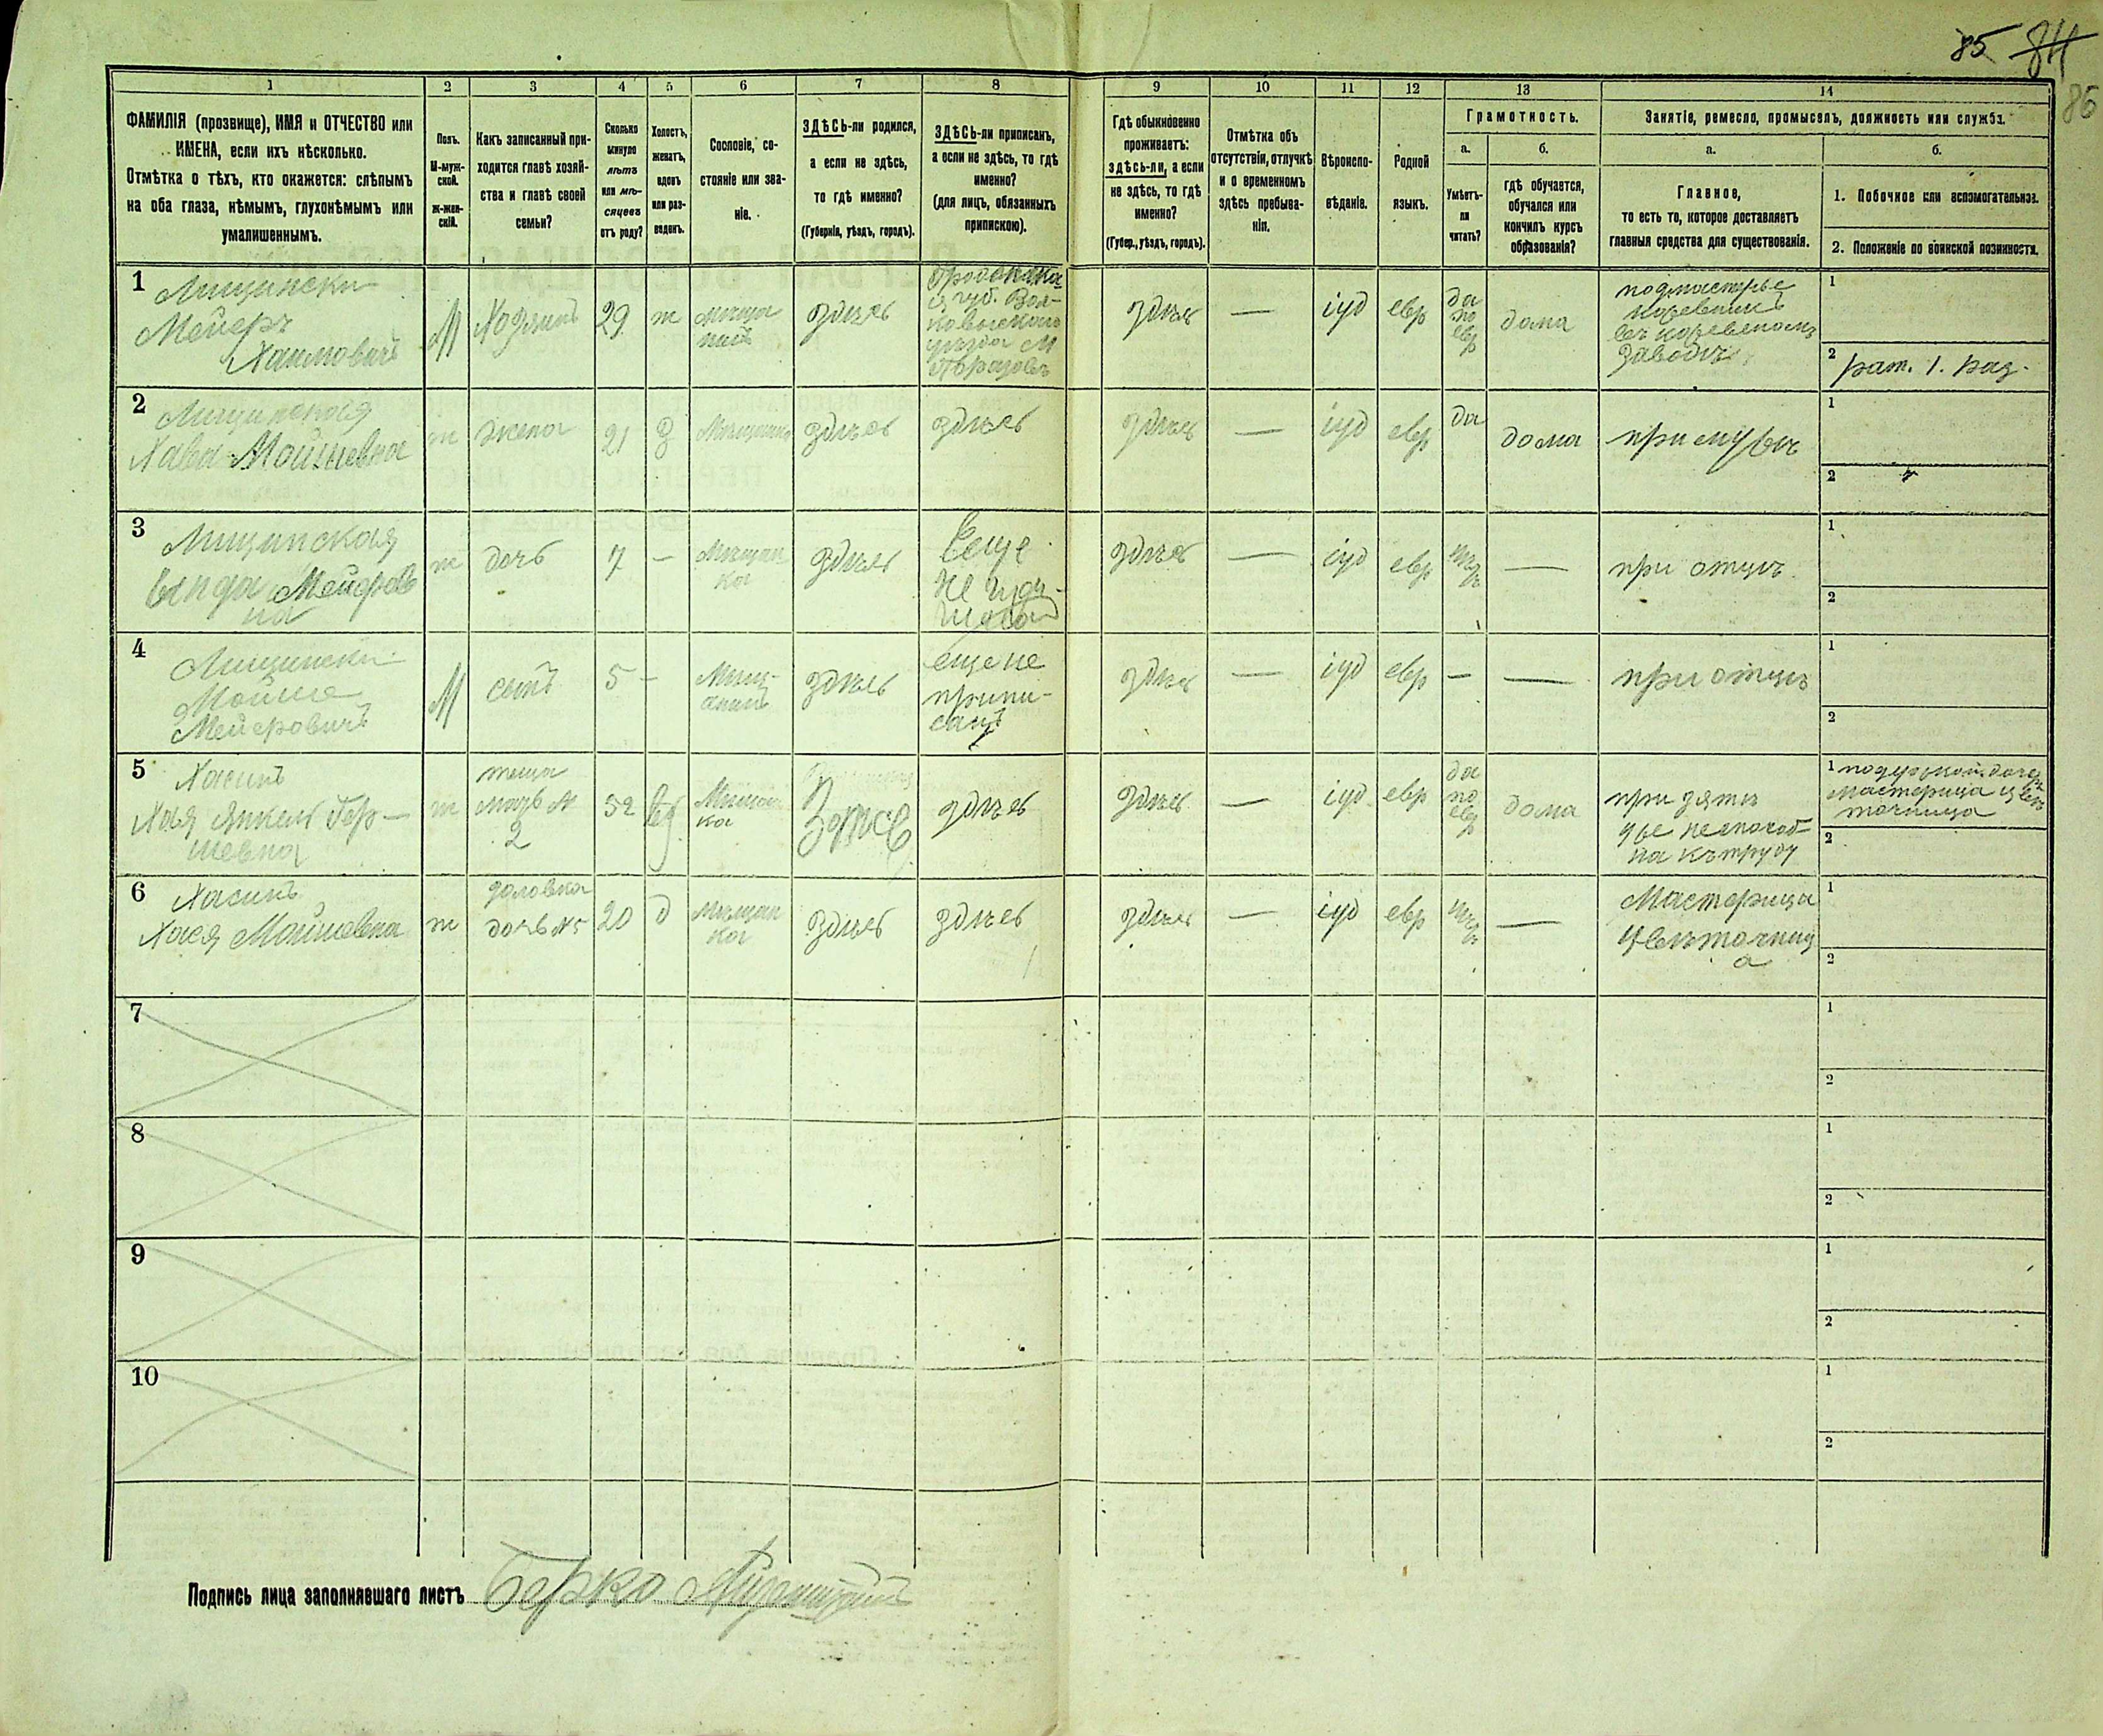 85 84
86
1 2 3 4 5 6 7 8 9 10 11 12 13 14
ФАМИЛІЯ (прозвище), ИМЯ и ОТЧЕСТВО или
ИМЕНА, если ихъ нѣсколько.
Отмѣтка о тѣхъ, кто окажется: слѣпымъ
на оба глаза, нѣмымъ, глухонѣмымъ или
умалишеннымъ.
Полъ.
М-муж-
ской.
ж-жен-
скій.
Какъ записанный при-
ходится главѣ хозяй-
ства и главѣ своей
семьи?
Сколько
минуло
лѣтъ
или мѣ-
сяцевъ
отъ роду?
Холостъ,
женатъ,
вдовъ
или раз-
веденъ.
Сословіе, со-
стояніе или зва-
ніе.
ЗДѢСЬ-ли родился,
а если не здѣсь,
то гдѣ именно?
(Губернія, уѣздъ, городъ).
ЗДѢСЬ-ли приписанъ,
а если не здѣсь, то гдѣ
именно?
(для лицъ, обязанныхъ
припискою).
Гдѣ обыкновенно
проживаетъ:
здѣсь-ли, а если
не здѣсь, то гдѣ
именно?
(Губер., уѣздъ, городъ).
Отмѣтка объ
отсутствіи, отлучкѣ
и о временномъ
здѣсь пребыва-
ніи.
Вѣроиспо-
вѣданіе.
Родной
языкъ.
Грамотность.
а.
Умѣетъ-
ли
читать?
б.
гдѣ обучается,
обучался или
кончилъ курсъ
образованія?
Занятіе, ремесло, промыселъ, должность или служба.
а.
Главное,
то есть то, которое доставляетъ
главныя средства для существованія.
б.
1. Побочное или вспомогательное.
2. Положеніе по воинской повинности.
1
Лищински
Мейеръ
Хаимовичъ
М
Хозяинъ
29
ж
мѣща
нинъ
здѣсь
губ. Вол-
ковыскаго
уѣзда М
здѣсь
—
іуд
евр
да
по
евр
дома
подмастерье
въ
заводѣ
1
2 рат. 1. раз.
2
Хава Мойшевна
ж
жена
21
з
Мѣщанка
здѣсь
здѣсь
здѣсь
—
іуд
евр
да
дома
при мужѣ
1
2
3
Лищинская
Мейеров
на
ж
дочь
7
—
Мѣщан
ка
здѣсь
Еще
не
здѣсь
—
іуд
евр
нѣ
тъ
—
при отцѣ
1
2
4
Лищински
Мойше
Мейеровичъ
М
сынъ
5
—
Мѣщ-
анинъ
здѣсь
еще не
припи-
санъ
здѣсь
—
іуд
евр
—
—
при отцѣ
1
2
5
Хасинъ
Хая Янкель Гер-
шевна
ж
теща
мать №
2
52
Мѣщан
ка
здѣсь
здѣсь
—
іуд
евр
да
по
евр
дома
при зятѣ
уже неспособ-
на къ труду
1
мастерица цвѣ
точница
2
6
Хасинъ
Хася Мойшевна
ж
золовка
дочь №5
20
д
мѣщан
ка
здѣсь
здѣсь
здѣсь
—
іуд
евр
нѣ
тъ
—
Мастерица
цвѣточниц
а
1
2
7
1
2
8
1
2
9
1
2
10
1
2
Подпись лица заполнявшаго листъ Берко